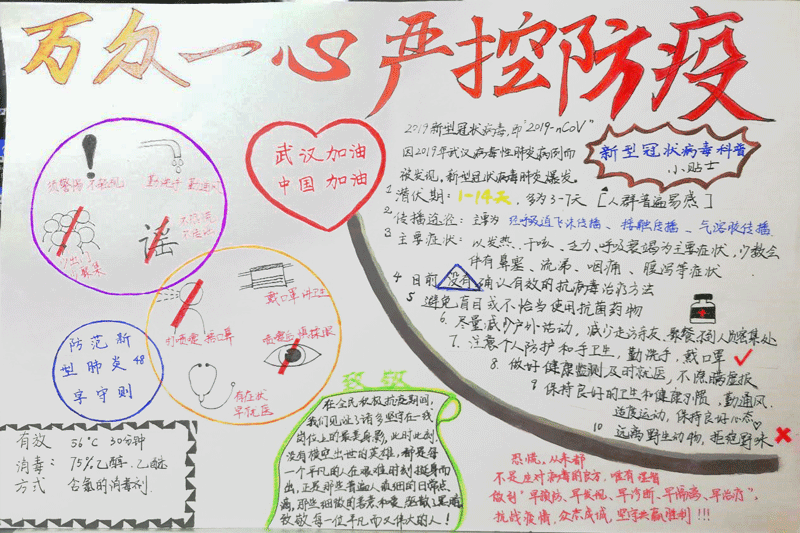 万众一心 严控防疫
武汉加油
中国加油
2019新型冠状病毒,即"2019-nCoV"
因2019年武汉病毒性肺炎病例而
被发现,新型冠状病毒肺炎爆发。
新型冠状病毒科普
小贴士
1 潜伏期: 1-14天, 多为3-7天 [人群普遍易感]
2 传播途径: 主要为 经呼吸道飞沫传播、接触传播、气溶胶传播
3 主要症状: 以发热、干咳、乏力、呼吸衰竭为主要症状,少数会
伴有鼻塞、流涕、咽痛、腹泻等症状.
4 目前 没有 确认有效的抗病毒治疗方法
5 避免盲目或不恰当使用抗菌药物
6. 尽量减少户外活动, 减少走访亲友、聚餐,不到人员密集处
7. 注意个人防护和手卫生, 勤洗手, 戴口罩
8. 做好健康监测,及时就医,不隐瞒症报
9 保持良好的卫生和健康习惯,勤通风.
适度运动, 保持良好心态
10 远离野生动物, 拒绝野味
恐慌,从来都
不是应对病毒的良方,唯有理智
做到"早预防、早发现、早诊断、早隔离、早治疗",
抗战疫情,众志成城,坚守共赢胜利!!!
勤洗手 勤通风
谣
戴口罩 讲卫生
打喷嚏 捂口鼻
有症状
早就医
防范新
型肺炎 48
字守则
有效 56°C 30分钟
消毒: 75%乙醇、乙醚
方式 含氯的消毒剂
致敬
在全民积极抗疫期间,
我们见证了诸多坚守在一线
岗位上的最美身影,此时此刻
没有横空出世的英雄,都是每
一个平凡的人在艰难时刻挺身而
出,正是那些普通人最细的日常点
滴,那些细微的善意和爱,
致敬每一位平凡而又伟大的人!